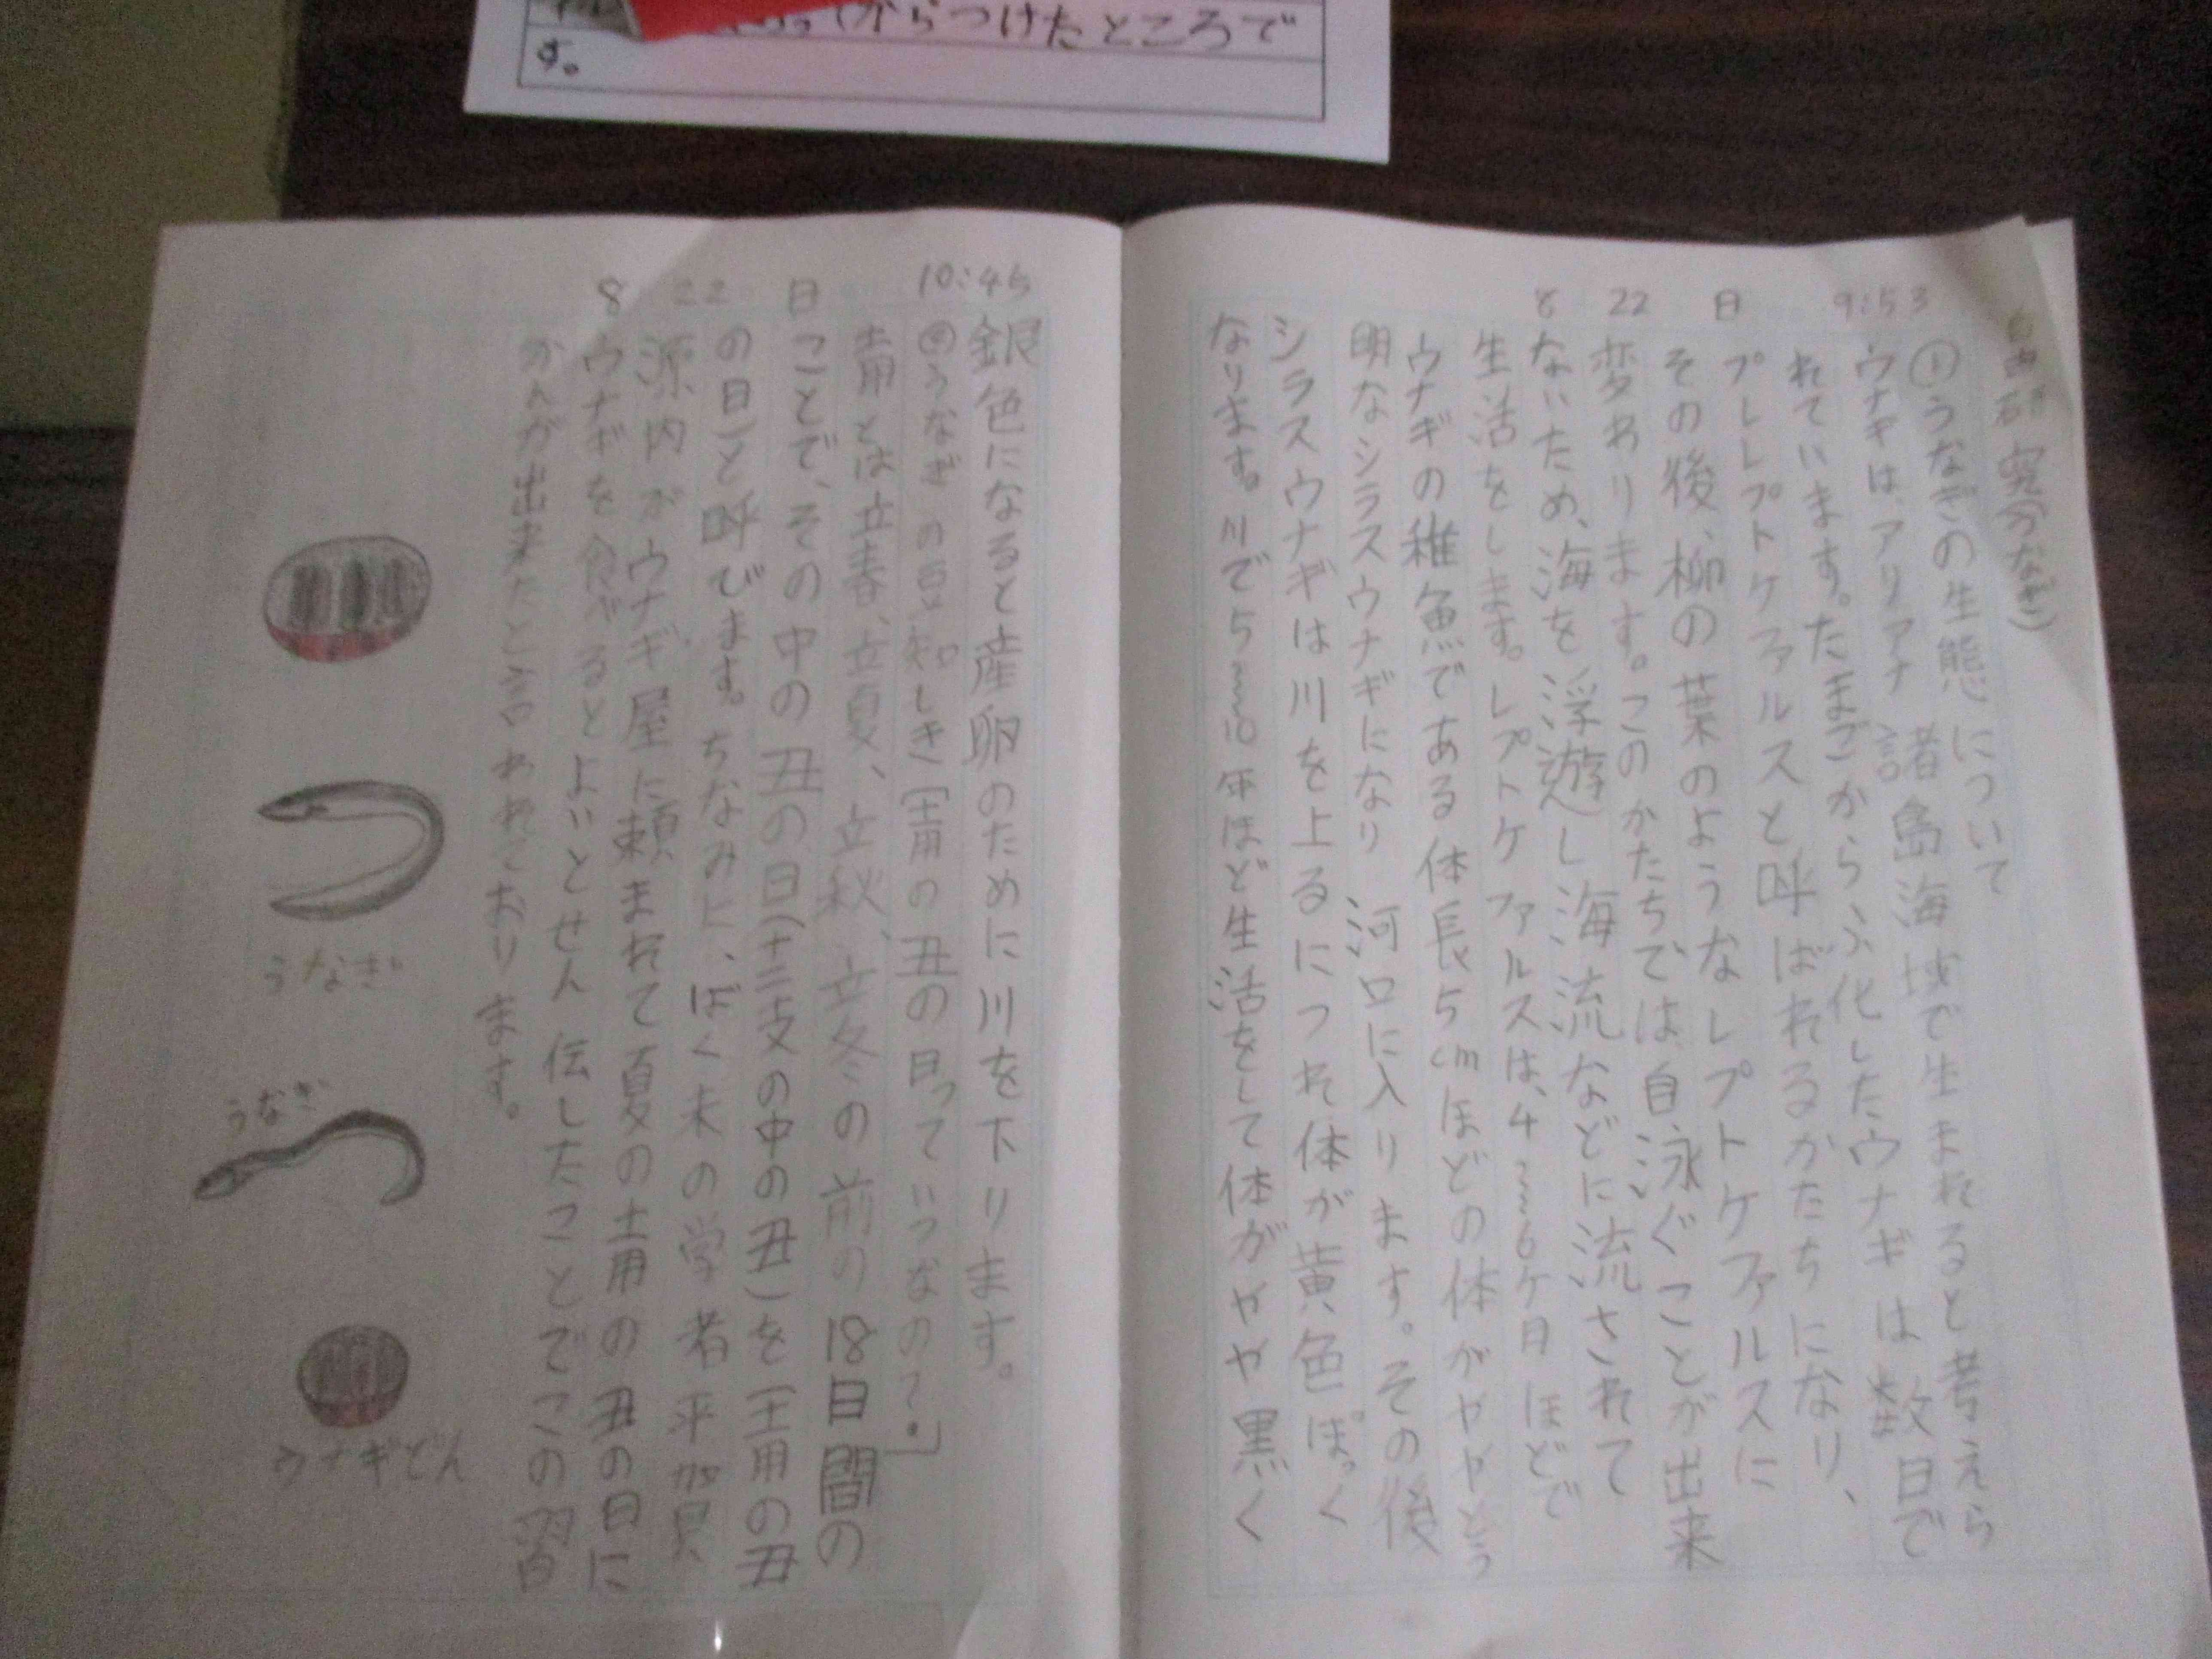 からつけたところで
す。
8 22 日 9:53
①うなぎの生態について
ウナギはアリアナ諸島海域で生まれると考えら
れています。たまごからふ化したウナギは数日で
プレレプトケファルスと呼ばれるかたちになり、
その後、柳の葉のようなレプトケファルスに
変わります。このかたちでは自泳ぐことが出来
ないため、海を浮遊し海流などに流されて
生活をします。レプトケファルスは、4〜6ケ月ほどで
ウナギの稚魚である体長5cmほどの体がややとう
明なシラスウナギになり河口に入ります。その後
シラスウナギは川を上るにつれ体が黄色ぽっく
なります。川で5〜10年ほど生活をして体がやや黒く
8 22 日 10:45
銀色になると産卵のために川を下ります。
うなぎの豆知しき「土用の丑の日っていつなの?」
土用とは立春、立夏、立秋、立冬の前の18日間の
ことで、その中の丑の日(十二支の中の丑)を(土用の丑
の日)と呼びます。ちなみに、ばく末の学者平賀
源内がウナギ屋に頼まれて夏の土用の丑の日に
ウナギを食べるとよいとせん伝したことでこの習
かんが出来たと言われております。
うなぎ
うなぎ
ウナギどん